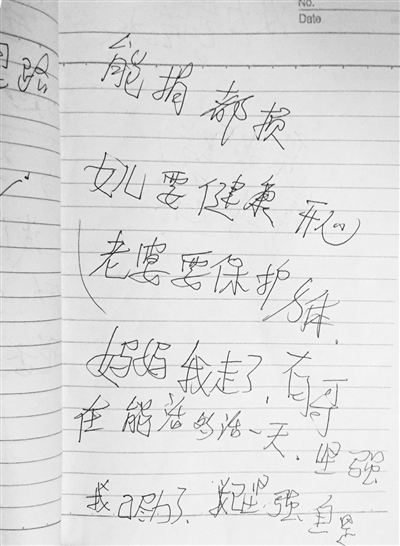 No.
Date
能捐都捐
女儿要健康 开心
老婆要保护身体.
妈妈我走了, 有哥
在能活多活一天. 坚强
我尽力了. 坚强